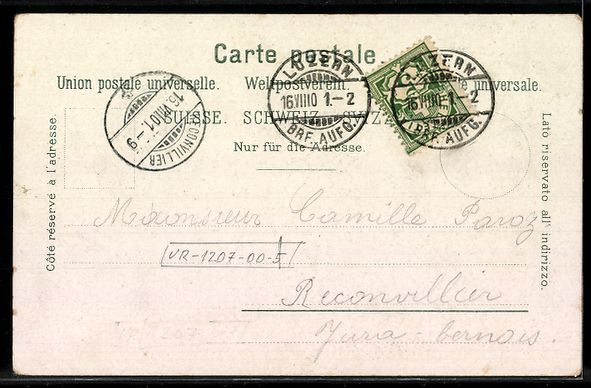 Carte postale.
Union postale universelle. Weltpostverein. universale.
SUISSE. SCHWEIZ. SVIZ
Nur für die Adresse.
Côté réservé à l'adresse.
Lato riservato all' indirizzo.
LUZERN
16 VIII 0 1.-2
BRF. AUFG.
UZERN
16 VIII 0 1 2
AUFG.
16 VIII 01 - 9
RECONVILLIER
Monsieur Camille Paroz
VR-1207-00-5
Reconvillier
Jura-bernois.